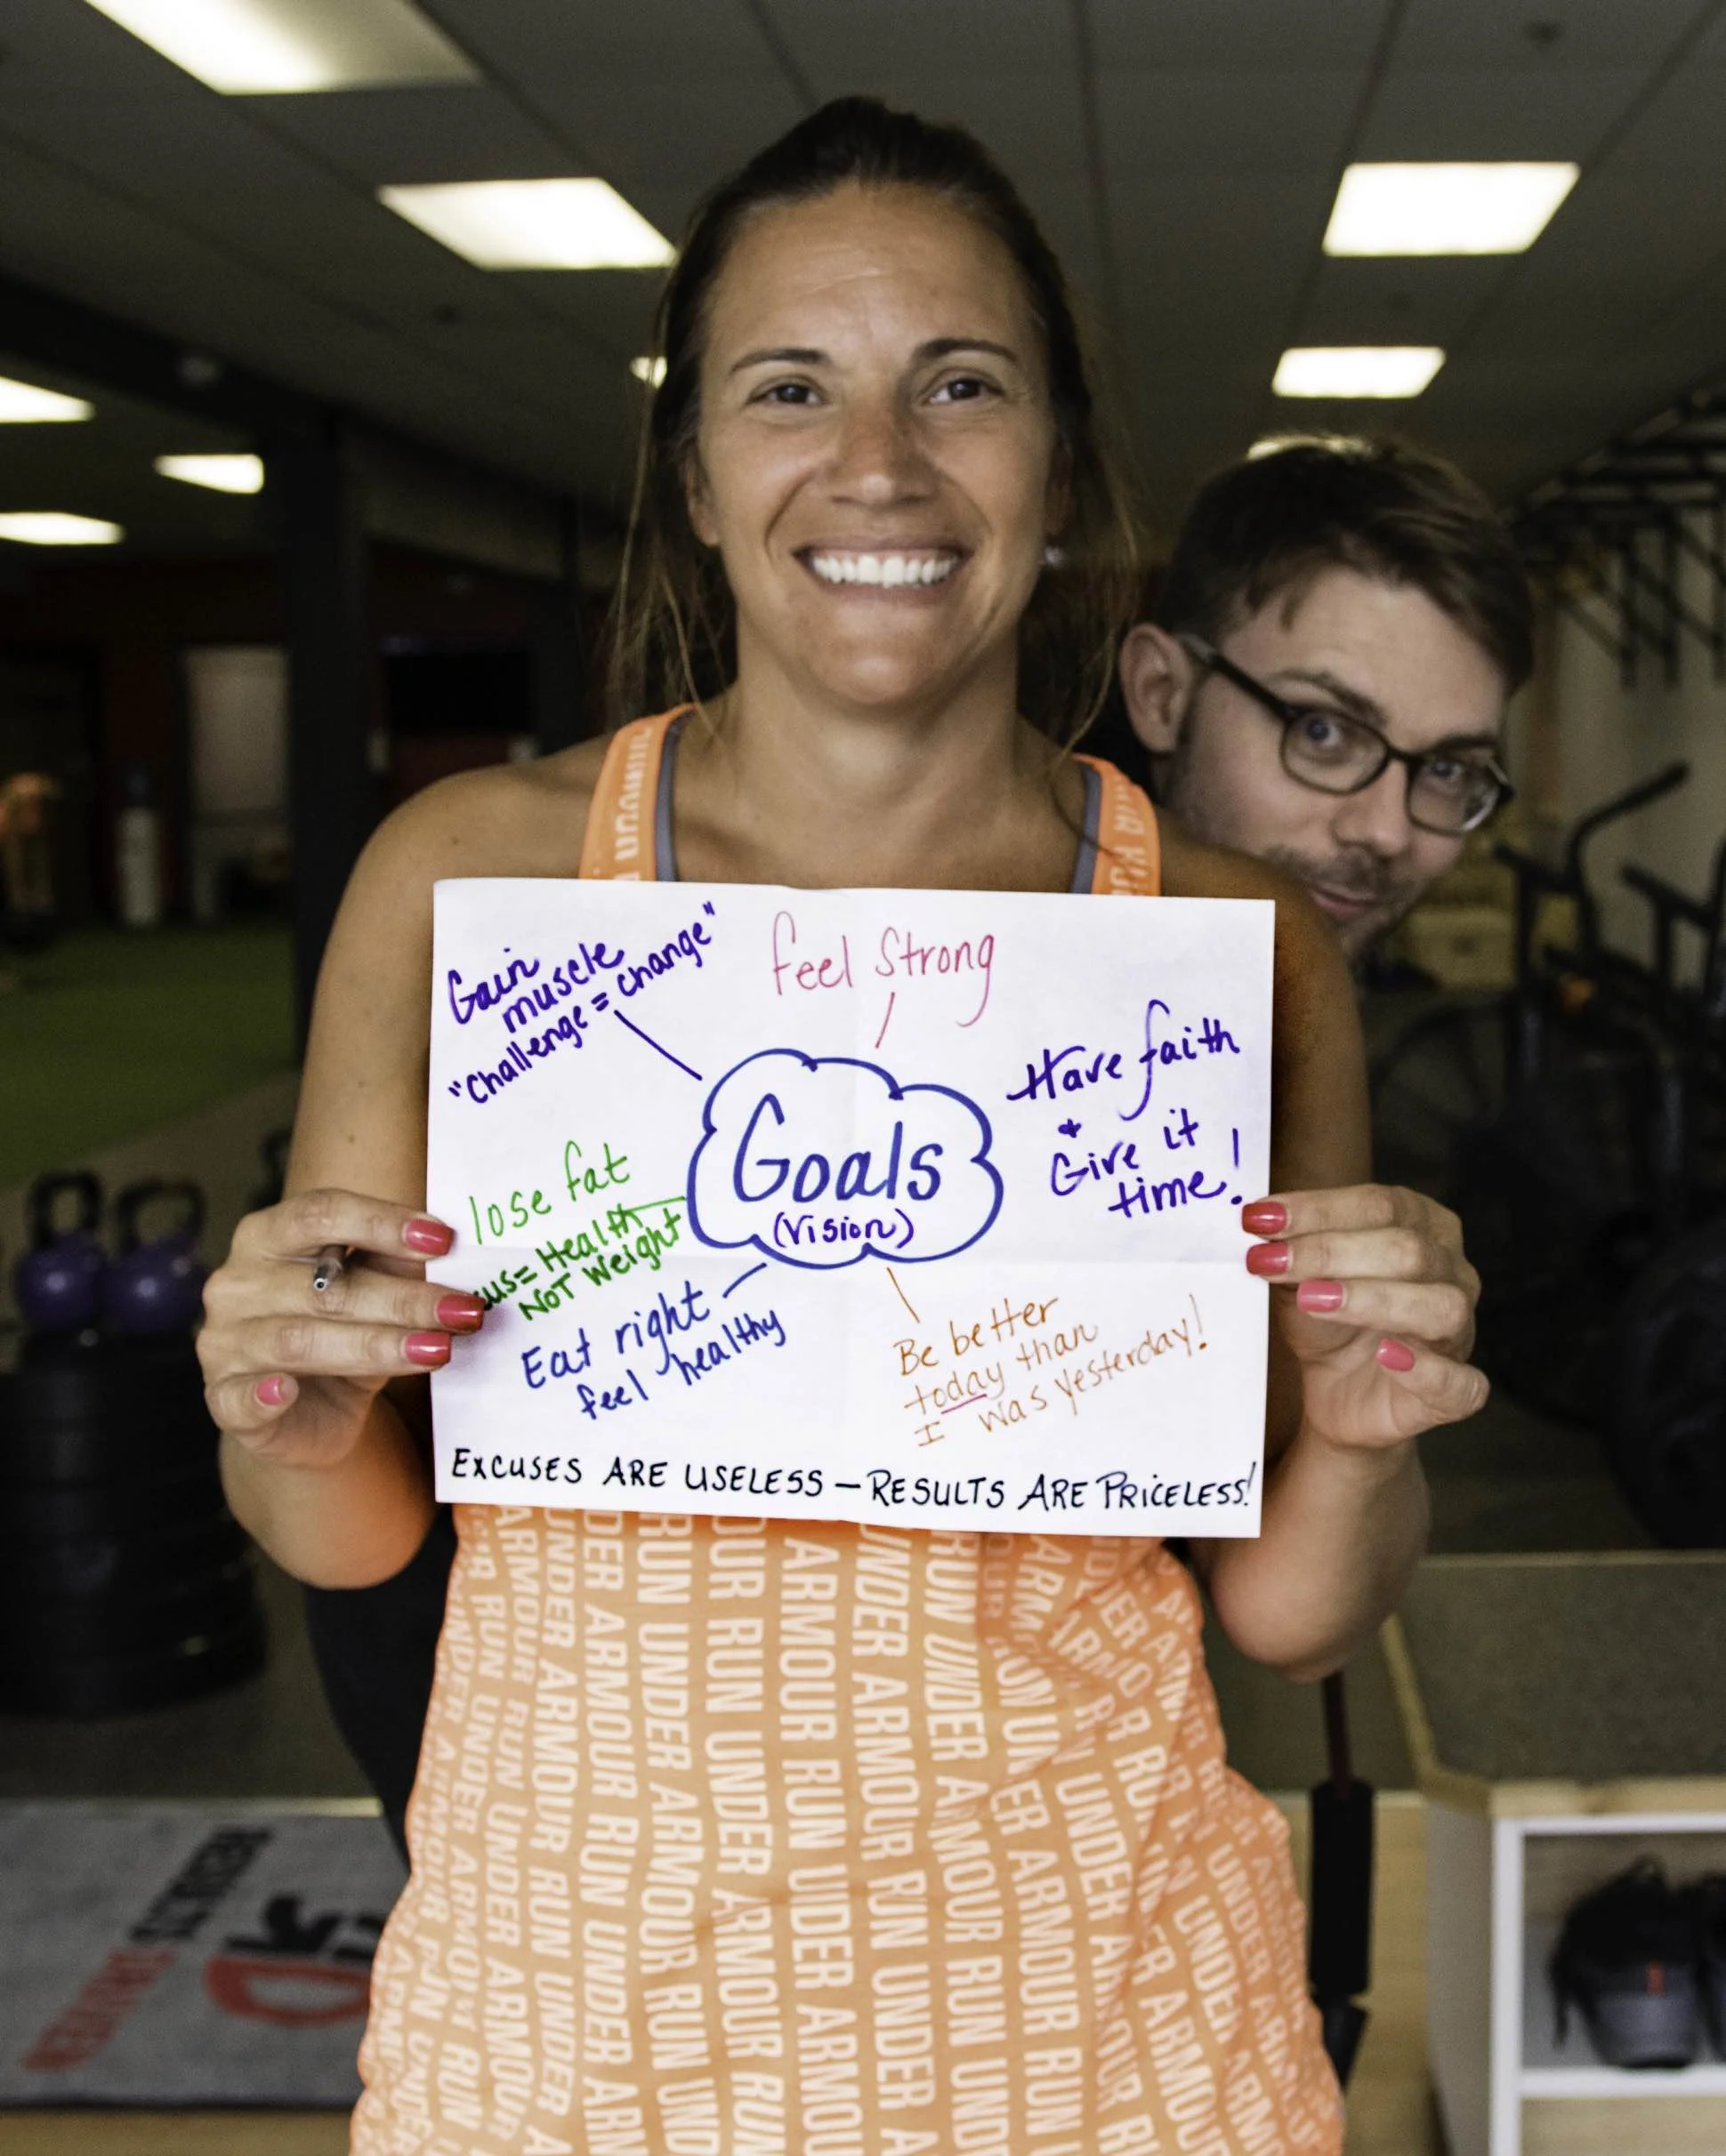 Gain
muscle
"Challenge = change"
feel Strong
Have faith
+
Give it
time!
Goals
(Vision)
lose fat
Health
NOT Weight
Eat right
feel healthy
Be better
today than
I was yesterday!
EXCUSES ARE USELESS — RESULTS ARE PRICELESS!
UNDER ARMOUR RUN UNDER ARMOUR RUN UNDER ARMOUR RUN
RESULTS
DRIVEN